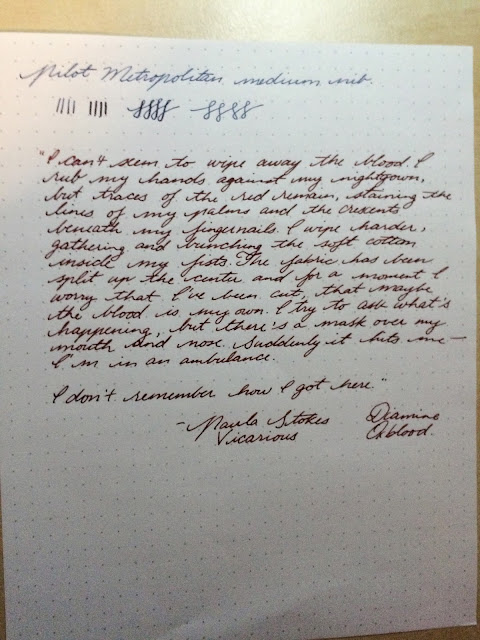 Pilot Metropolitan medium nib.
"I can't seem to wipe away the blood. I
rub my hands against my nightgown,
but traces of the red remain, staining the
lines of my palms and the cresents
beneath my fingernails. I wipe harder,
gathering and bunching the soft cotton
inside my fists. The fabric has been
split up the center and for a moment I
worry that I've been cut, that maybe
the blood is my own. I try to ask what's
happening, but there's a mask over my
mouth and nose. Suddenly it hits me—
I'm in an ambulance.
I don't remember how I got here."
- Paula Stokes
Vicarious
Diamine
Oxblood.